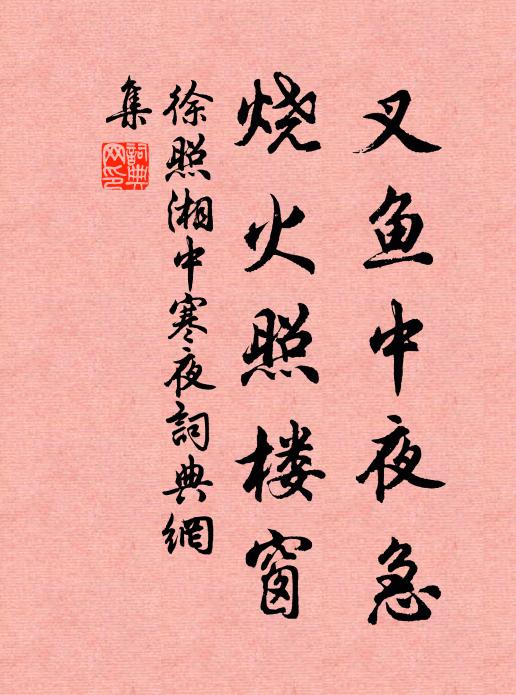 叉鱼中夜急
烧火照楼窗
徐照湘中寒夜詞典網
集
詞典网印